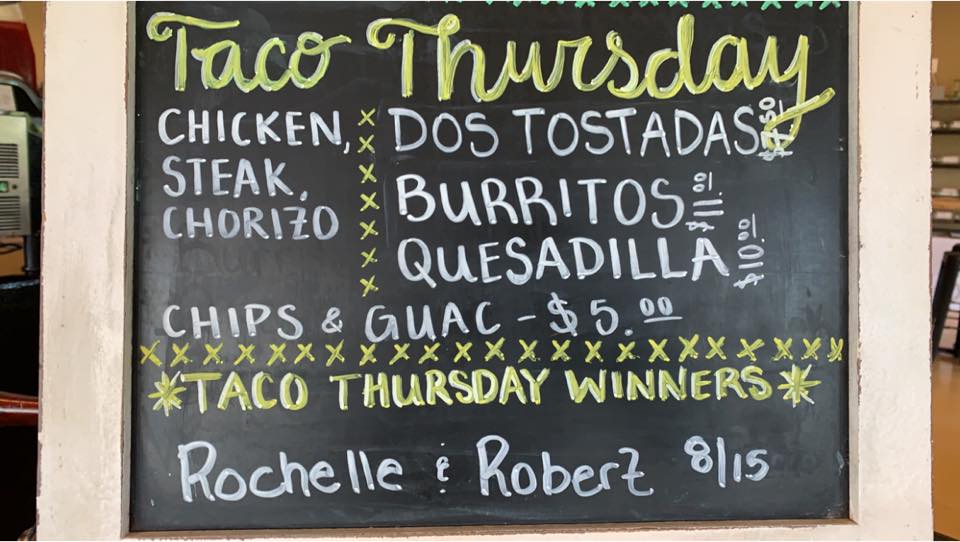 Taco Thursday
CHICKEN,
STEAK,
CHORIZO
DOS TOSTADAS $7.50
BURRITOS $11.00
QUESADILLA $10.00
CHIPS & GUAC - $5.00
TACO THURSDAY WINNERS
Rochelle & Robert 8/15